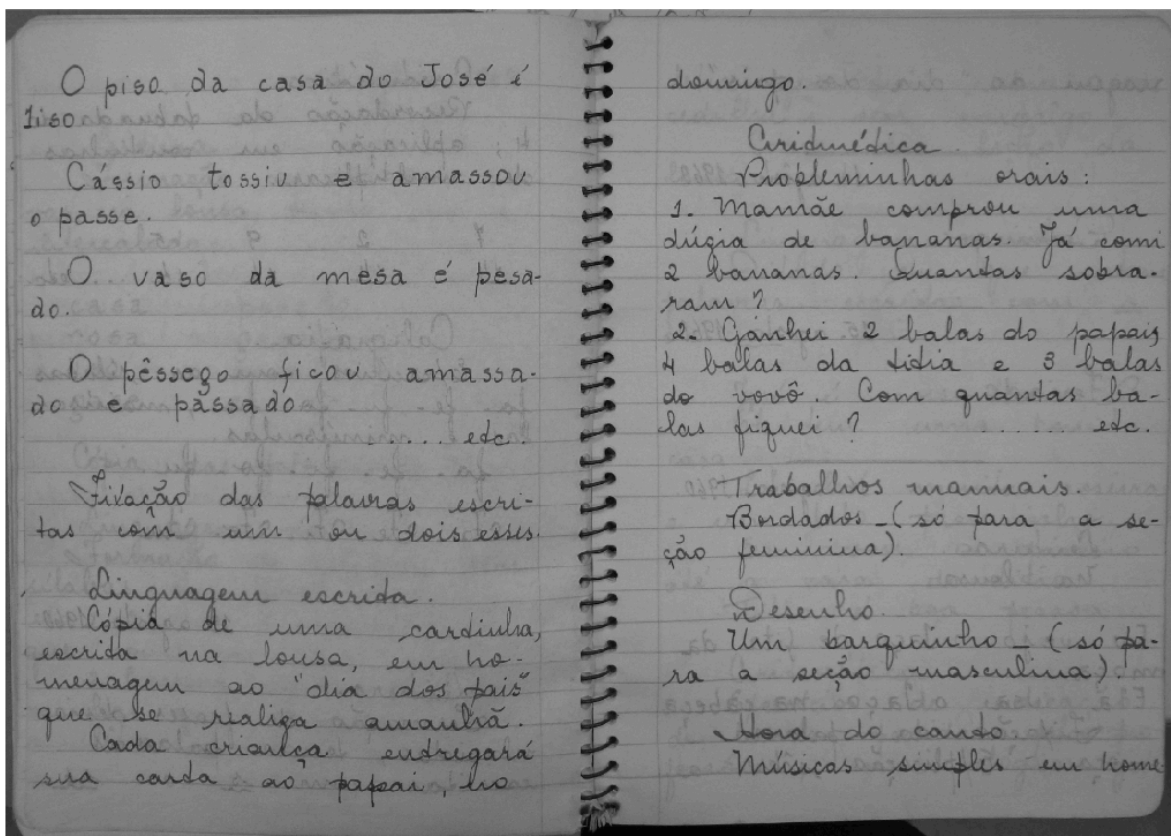 O piso da casa do José é
liso.
Cássio tossiu e amassou
o passe.
O vaso da mesa é pesa-
do.
O pêssego ficou amassa-
do e passado
.... etc.
Fixação das palavras escri-
tas com um ou dois esses.
Linguagem escrita.
Cópia de uma cartinha,
escrita na lousa, em ho-
menagem ao "dia dos pais"
que se realiza amanhã.
Cada criança entregará
sua carta ao papai, no
domingo.
Aritmética.
Probleminhas orais:
1. Mamãe comprou uma
dúzia de bananas. Já comi
2 bananas. Quantas sobra-
ram?
2. Ganhei 2 balas do papai,
4 balas da titia e 3 balas
do vovô. Com quantas ba-
las fiquei? ...... etc.
Trabalhos manuais.
Bordados - (só para a se-
ção feminina).
Desenho.
Um barquinho - (só pa-
ra a seção masculina).
Hora do canto.
Músicas simples em home